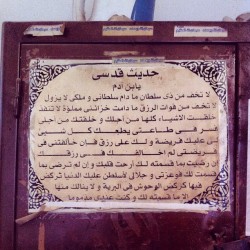 حديث قدسى
يابن آدم
لا تخف من ذى سلطان ما دام سلطانى و ملكى لا يزول
لا تخف من فوات الرزق ما دامت خزائنى مملوءة لا تنفد
خلقت الاشياء كلها من اجلك و خلقتك من اجلى
فسر فى طاعتى يطعك كل شىء
لى عليك فريضة ولك على رزق فإن خالفتنى فى
فريضتى لم اخالفك فى رزقك
إن رضيت بما قسمته لك أرحت قلبك و إن لم ترضى بما
قسمت لك فوعزتى و جلالى لأسلطن عليك الدنيا تركض
فيها كركض الوحوش فى البرية و لا ينالك منها
إلا ما قسمته لك و كنت عندى مذموما